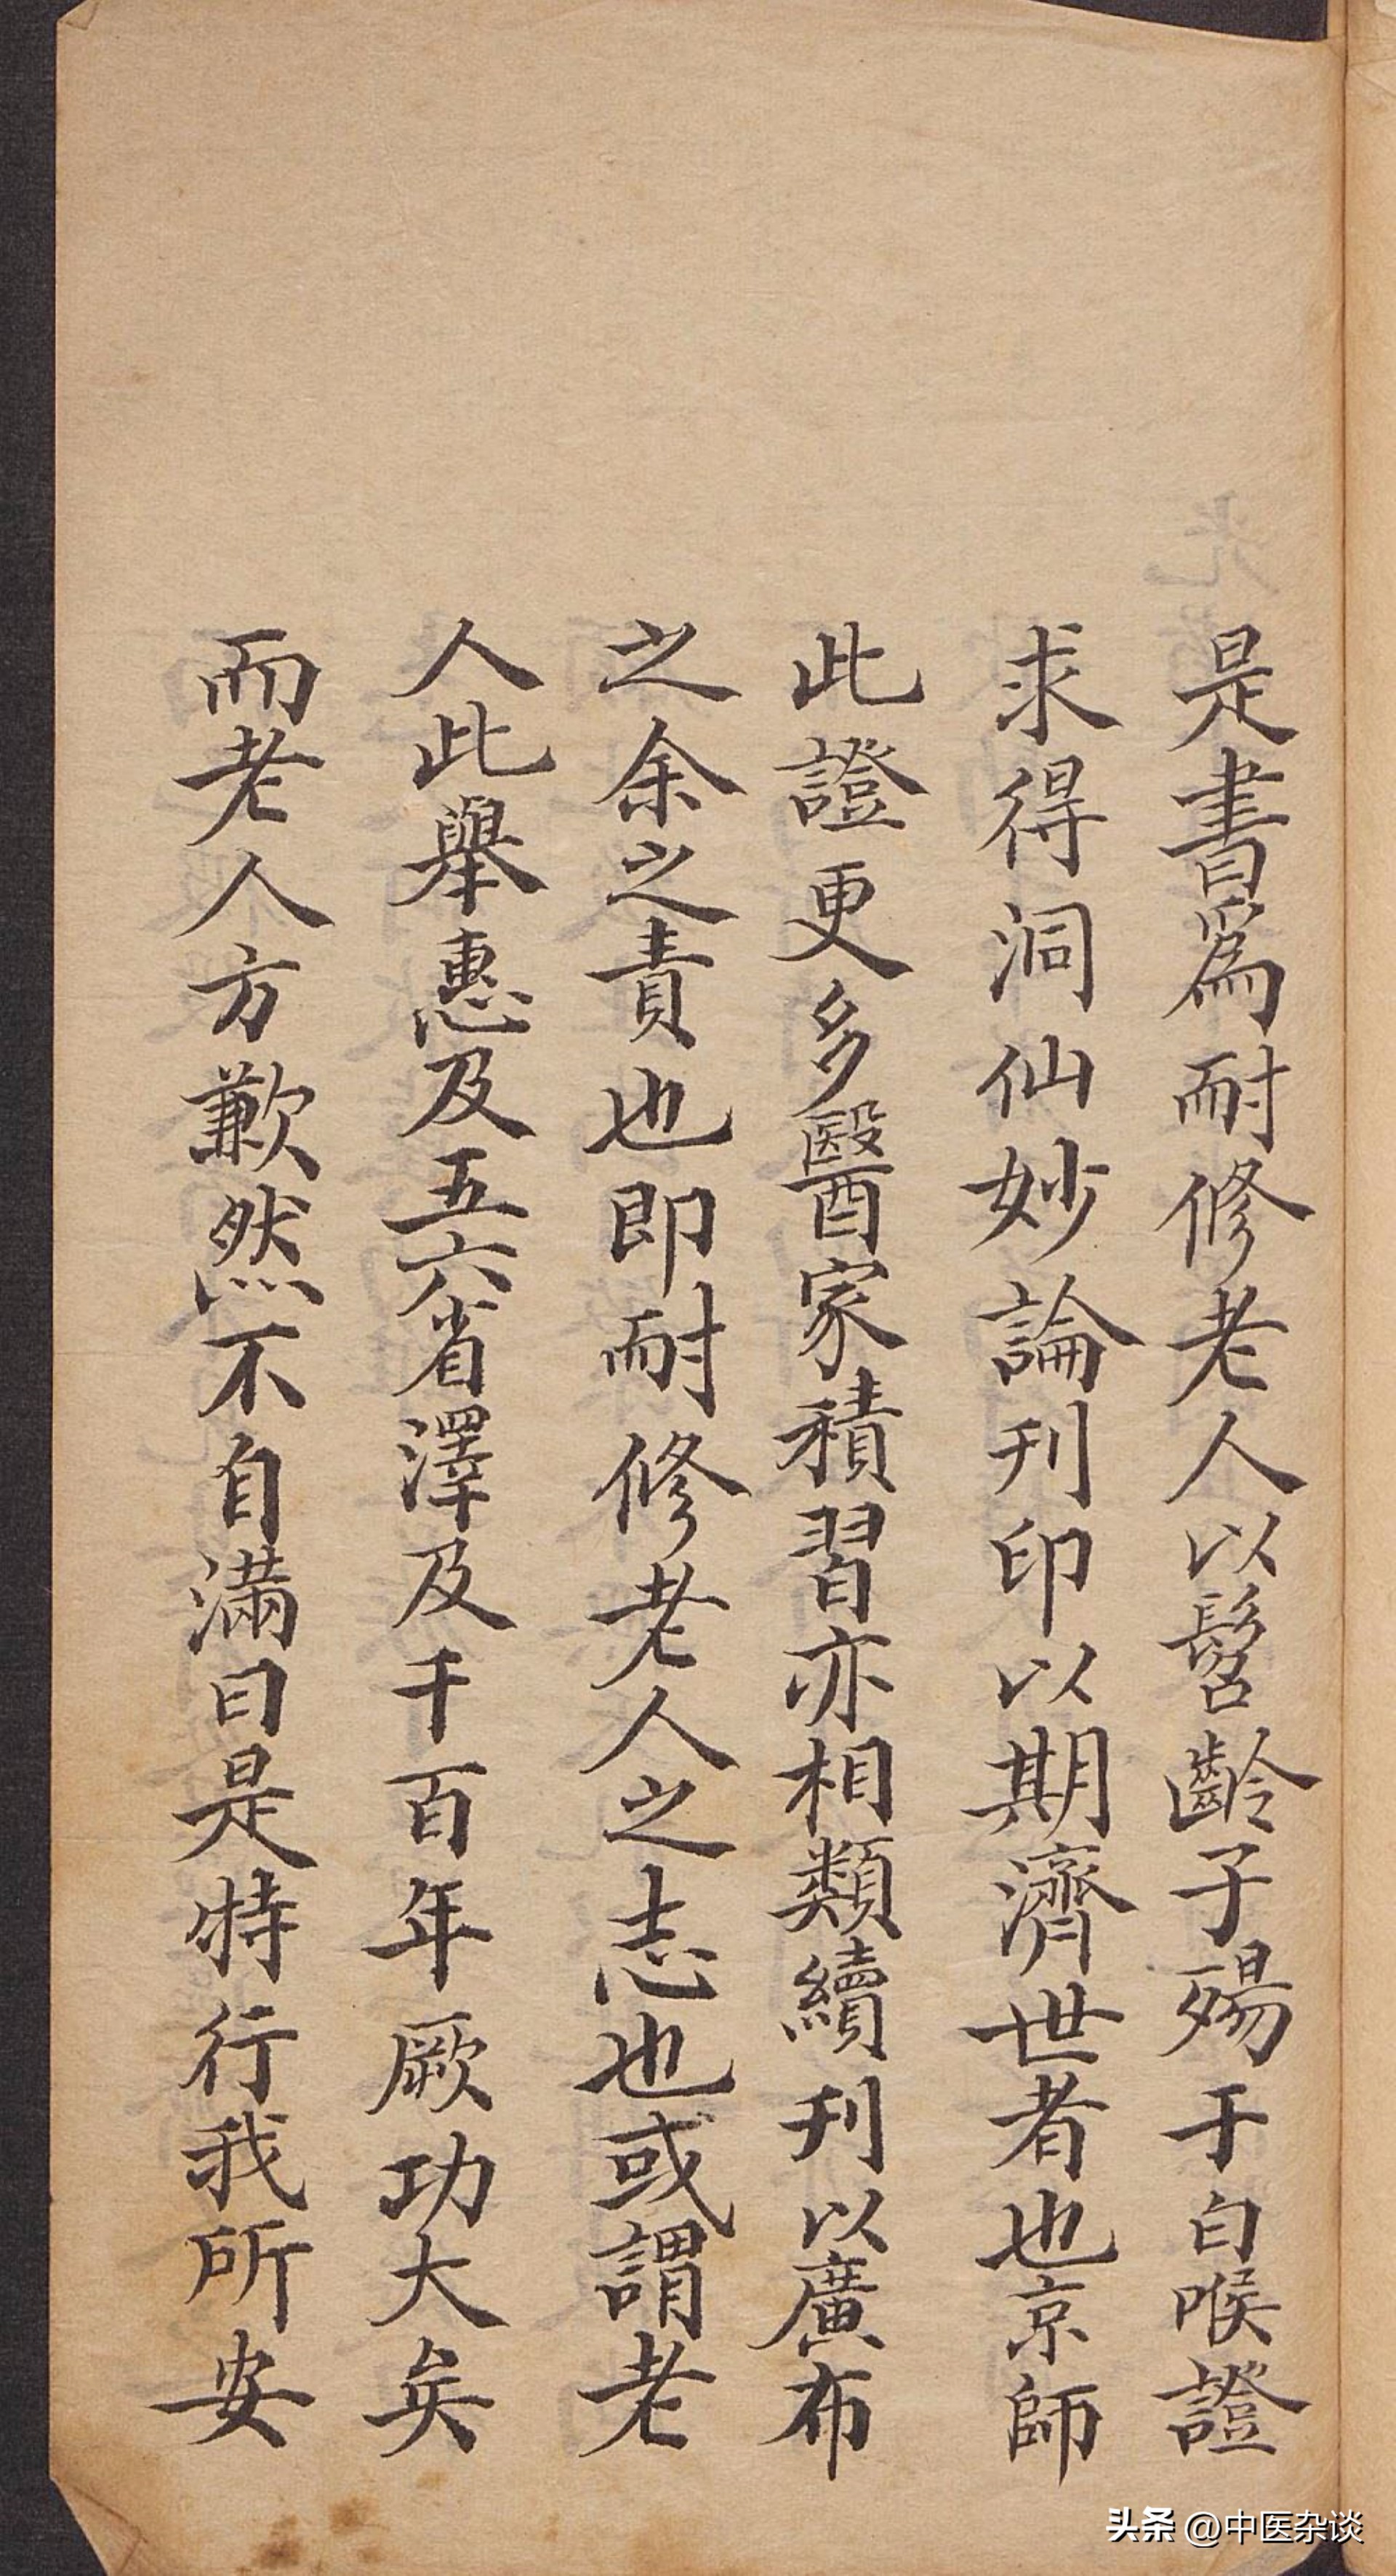 是書爲耐修老人以髫齡子殤于白喉證
求得洞仙妙論刊印以期濟世者也京師
此證更多醫家積習亦相類續刊以廣布
之余之責也即耐修老人之志也或謂老
人此舉惠及五六省澤及千百年厥功大矣
而老人方歉然不自滿曰是特行我所安
头条 @中医杂谈